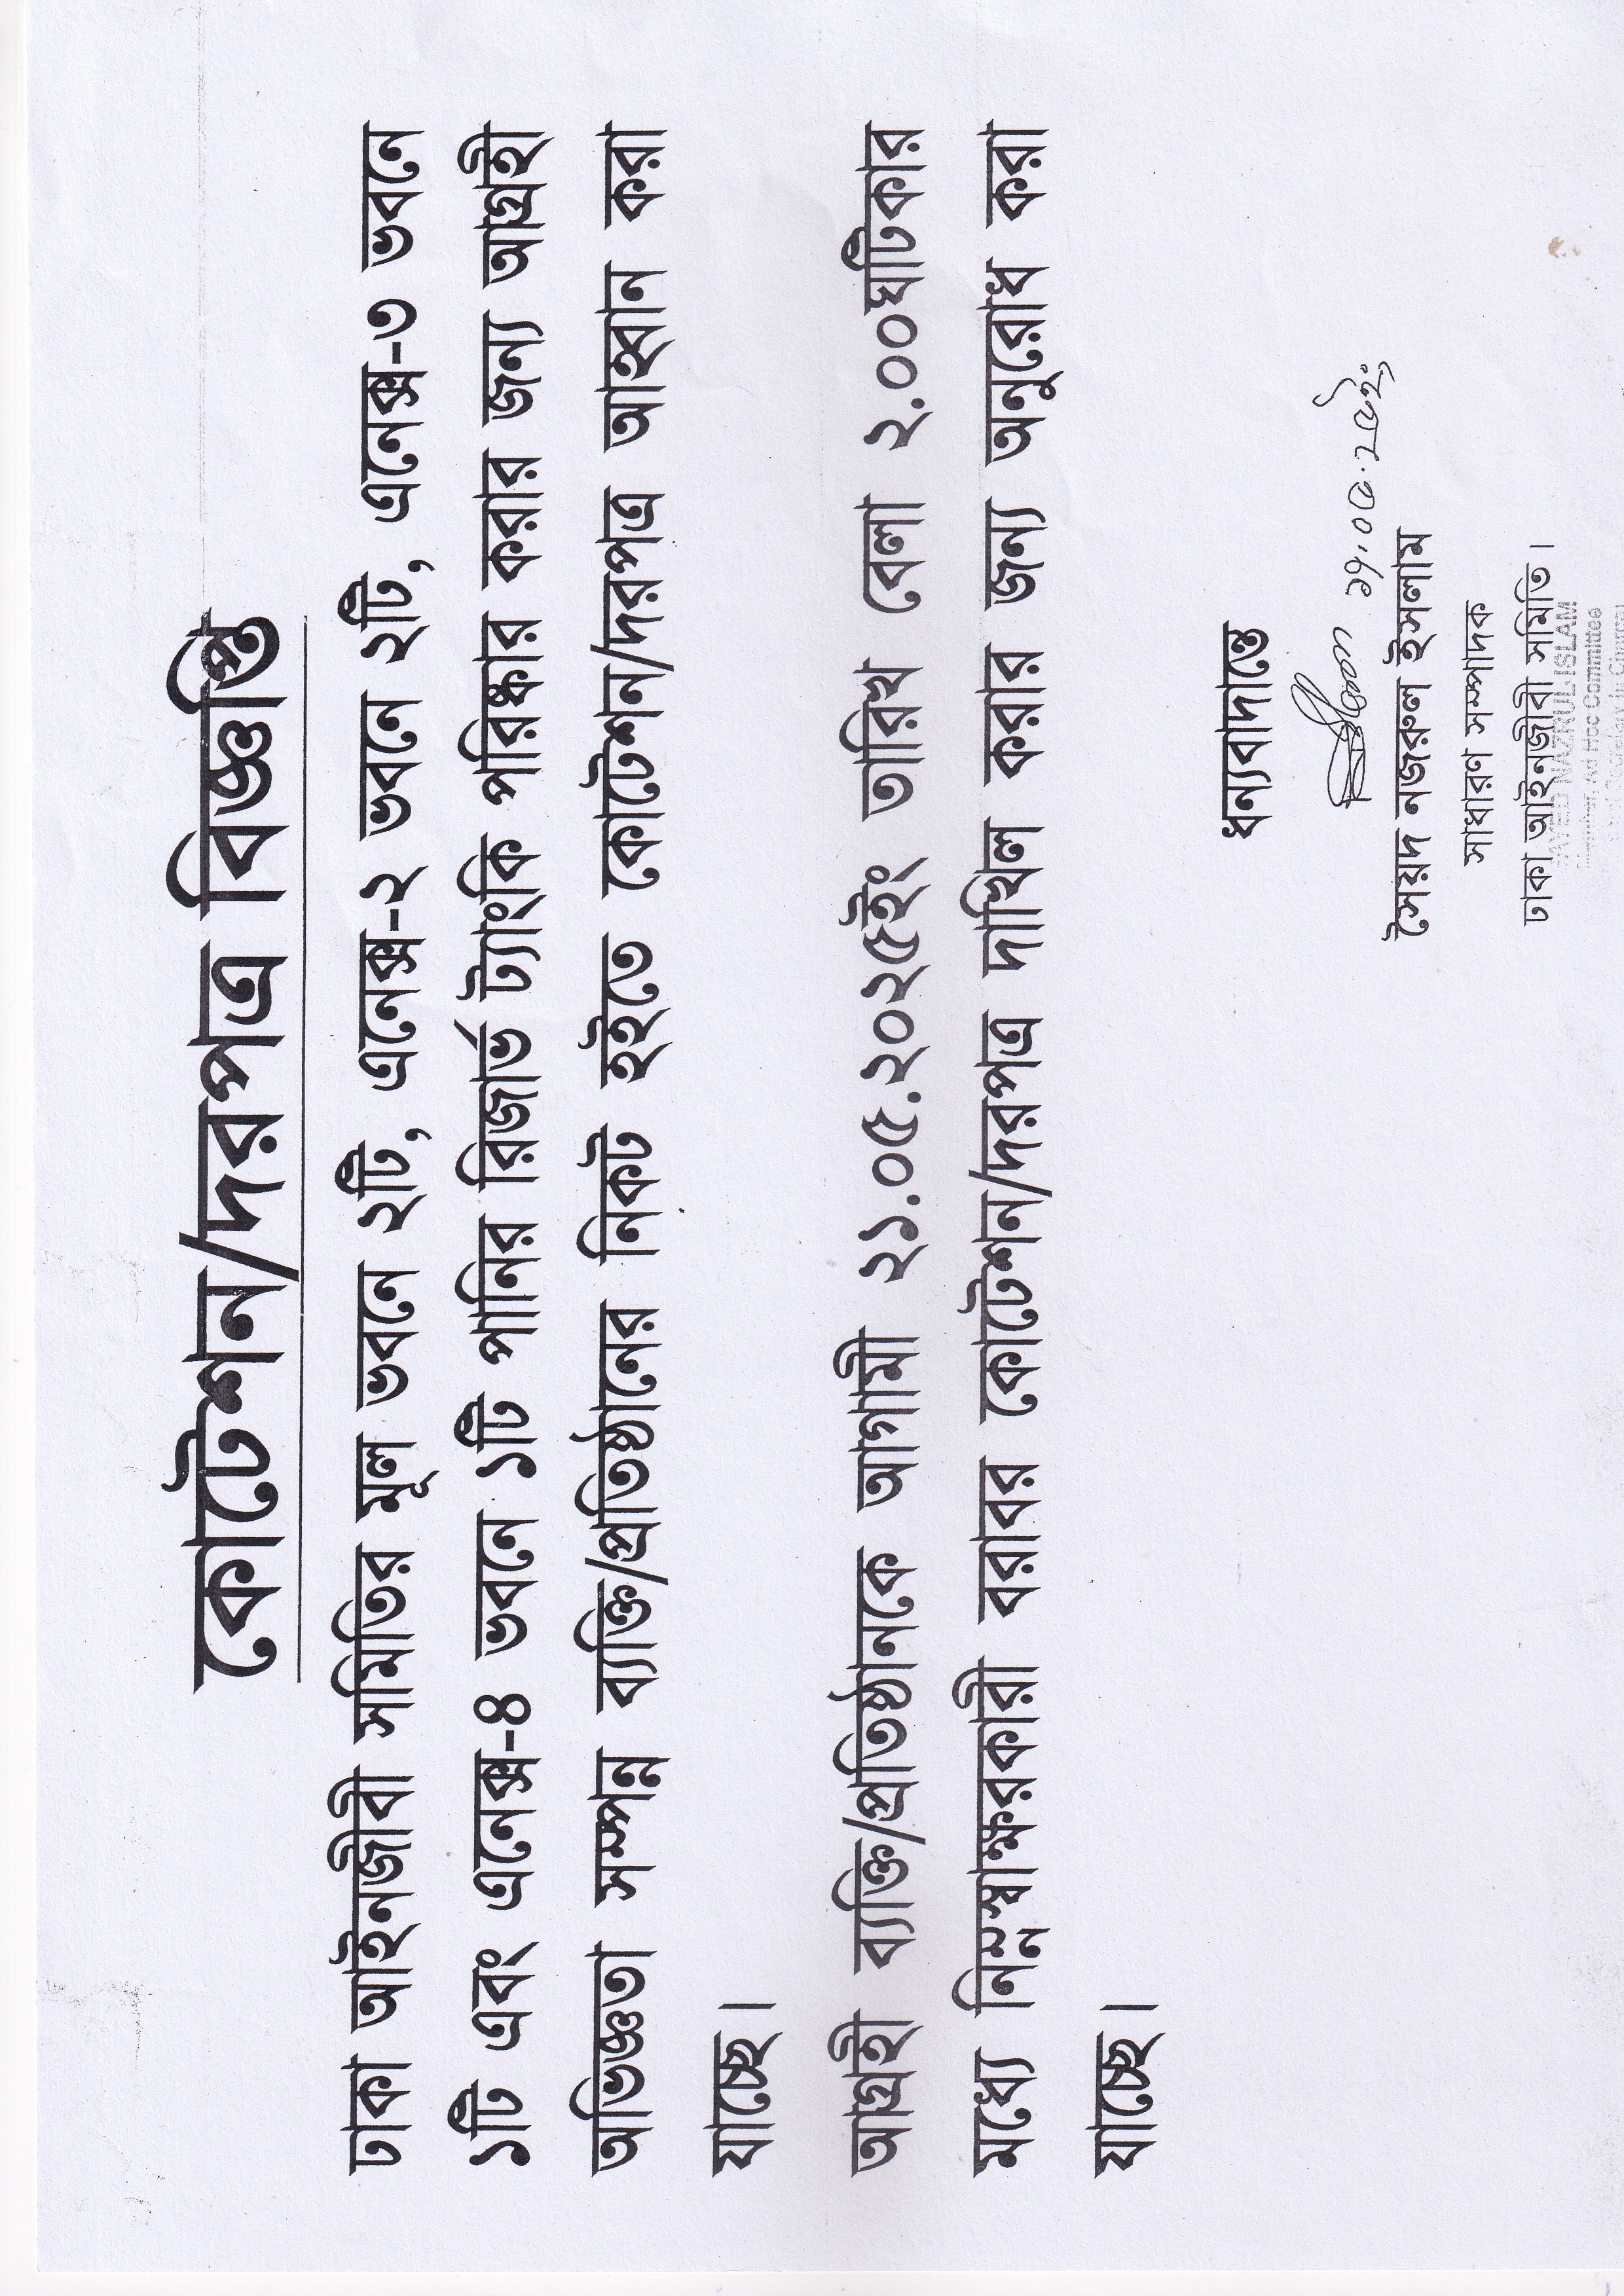 কোটেশন/দরপত্র বিজ্ঞপ্তি
ঢাকা আইনজীবী সমিতির মূল ভবনে ২টি, এনেক্স-২ ভবনে ২টি, এনেক্স-৩ ভবনে
১টি এবং এনেক্স-৪ ভবনে ১টি পানির রিজার্ভ ট্যাংকি পরিষ্কার করার জন্য আগ্রহী
অভিজ্ঞতা সম্পন্ন ব্যক্তি/প্রতিষ্ঠানের নিকট হইতে কোটেশন/দরপত্র আহ্বান করা
যাচ্ছে।
আগ্রহী ব্যক্তি/প্রতিষ্ঠানকে আগামী ২১.০৫.২০২৫ইং তারিখ বেলা ২.০০ঘটিকার
মধ্যে নিম্নস্বাক্ষরকারী বরাবর কোটেশন/দরপত্র দাখিল করার জন্য অনুরোধ করা
যাচ্ছে।
ধন্যবাদান্তে
সৈয়দ নজরুল ইসলাম
সাধারণ সম্পাদক
ঢাকা আইনজীবী সমিতি।
SAYED NAZRUL ISLAM
Ad Hoc Committee